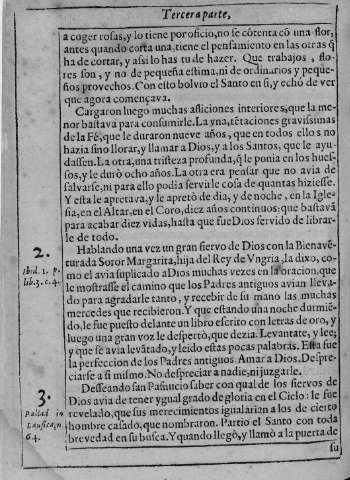 Tercera parte,
a coger rosas, y lo tiene por oficio, no se cõtenta cõ una flor,
antes quando corta una, tiene el pensamiento en las otras q̃
ha de cortar, y assi lo has tu de hazer. Que trabajos, flo-
res son, y no de pequeña estima, ni de ordinarios y peque-
ños provechos. Con esto bolvio el Santo en si, y echò de ver
que agora començava.
Cargaron luego muchas afliciones interiores, que la me-
nor bastava para consumirle. La vna, tẽtaciones gravissimas
de la Fè, que le duraron nueve años, que en todos ellos no
hazia sino llorar, y llamar a Dios, y a los Santos, que le ayu-
dassen. La otra, una tristeza profunda, q̃ le ponia en los hues-
sos, y le durò ocho años. La otra era pensar que no avia de
salvarse, ni para ello podia servirle cosa de quantas hiziesse.
Y esta le apretava, y le apretò de dia, y de noche, en la Igle-
sia, en el Altar, en el Coro, diez años continuos: que bastavã
para acabar diez vidas, hasta que fue Dios servido de librar-
le de todo.
2.
Hablando una vez un gran siervo de Dios con la Bienavẽ-
turada Soror Margarita, hija del Rey de Vngria, la dixo, co-
Ibid. l. p.
mo el avia suplicado a Dios muchas vezes en la oracion, que
lib. 3. c. 4.
le mostrasse el camino que los Padres antiguos avian lleva-
do para agradarle tanto, y recebir de su mano las muchas
mercedes que recibieron. Y que estando una noche durmiẽ-
do, le fue puesto delante un libro escrito con letras de oro, y
luego una gran voz le despertò, que dezia. Levantate, y lee;
y que se avia levãtado, y leido estas pocas palabras. Esta fue
la perfeccion de los Padres antiguos. Amar a Dios. Despre-
ciarse a si mismo. No despreciar a nadie, ni juzgarle.
3.
Desseando san Pafnucio saber con qual de los siervos de
Dios avia de tener ygual grado de gloria en el Cielo: le fue
Pallad. in
revelado, que sus merecimientos igualarian a los de cierto
Lausica, n
hombre casado, que nombraron. Partio el Santo con toda
64.
brevedad en su busca. Y quando llegò, y llamò a la puerta de
su